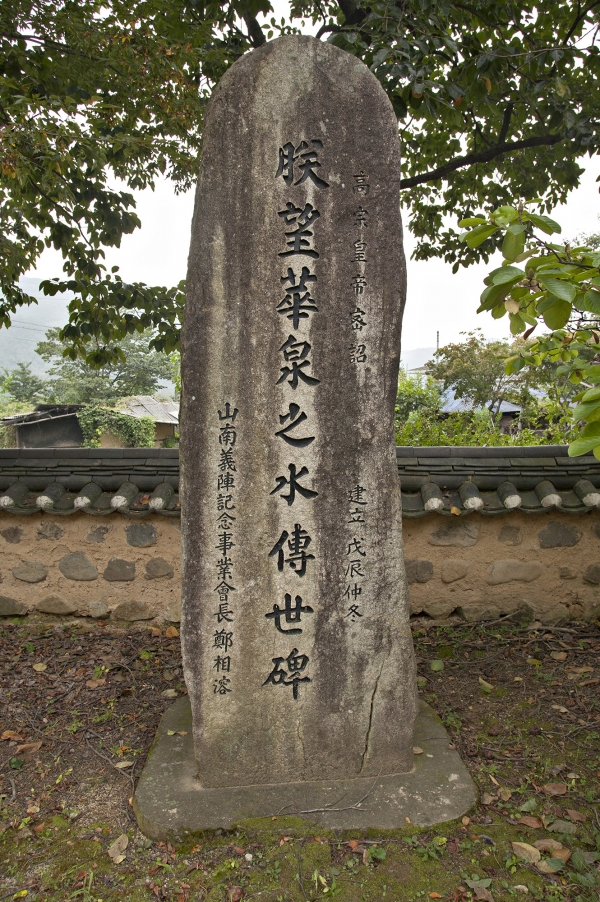 高宗皇帝密詔
建立 戊辰仲冬
朕望華泉之水傳世碑
山南義陣記念事業會長 鄭相溶